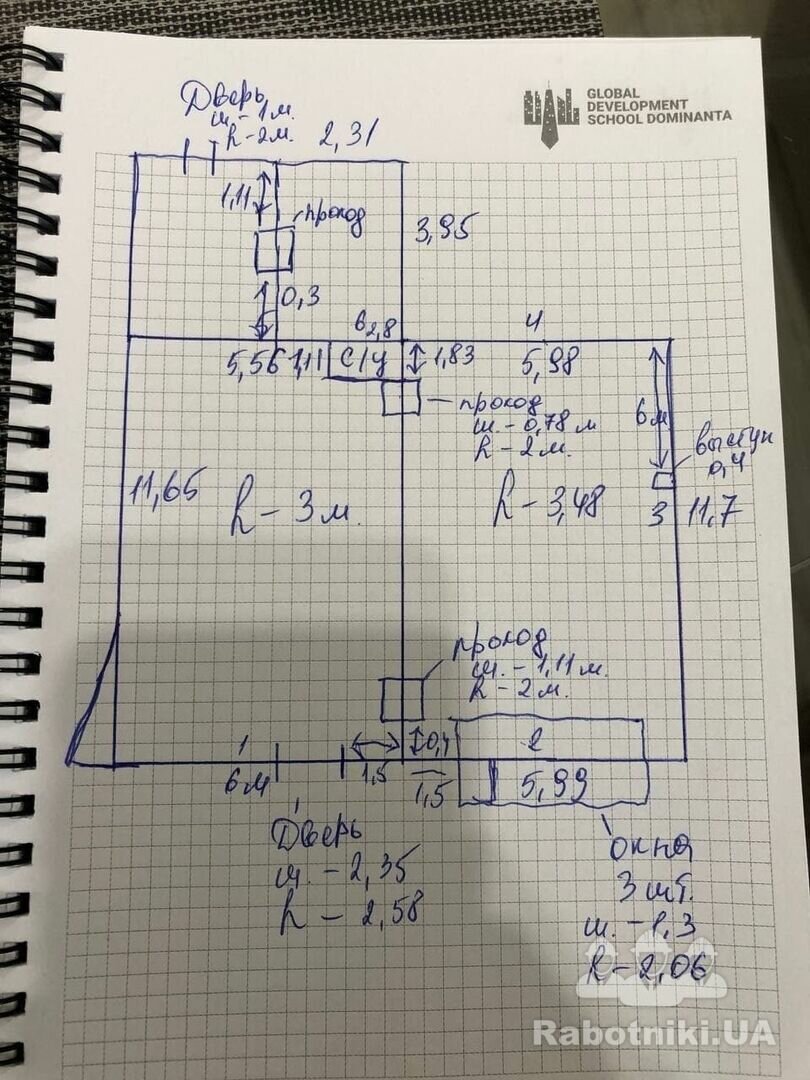 GLOBAL
DEVELOPMENT
SCHOOL DOMINANTA
Дверь
ш. - 1 м.
h - 2 м.
2,31
1,11
проход
3,95
0,3
6
2,8
4
5,56
1,11
с/у
1,83
5,98
проход
ш. - 0,78 м
h - 2 м.
6 м
выступ
0,4
11,65
h - 3 м.
h - 3,48
3
11,7
проход
ш. - 1,11 м.
h - 2 м.
1
6 м
1,5
0,4
1,5
2
5,99
Дверь
ш. - 2,35
h - 2,58
окна
3 шт.
ш. - 1,3
h - 2,06
Rabotniki.UA